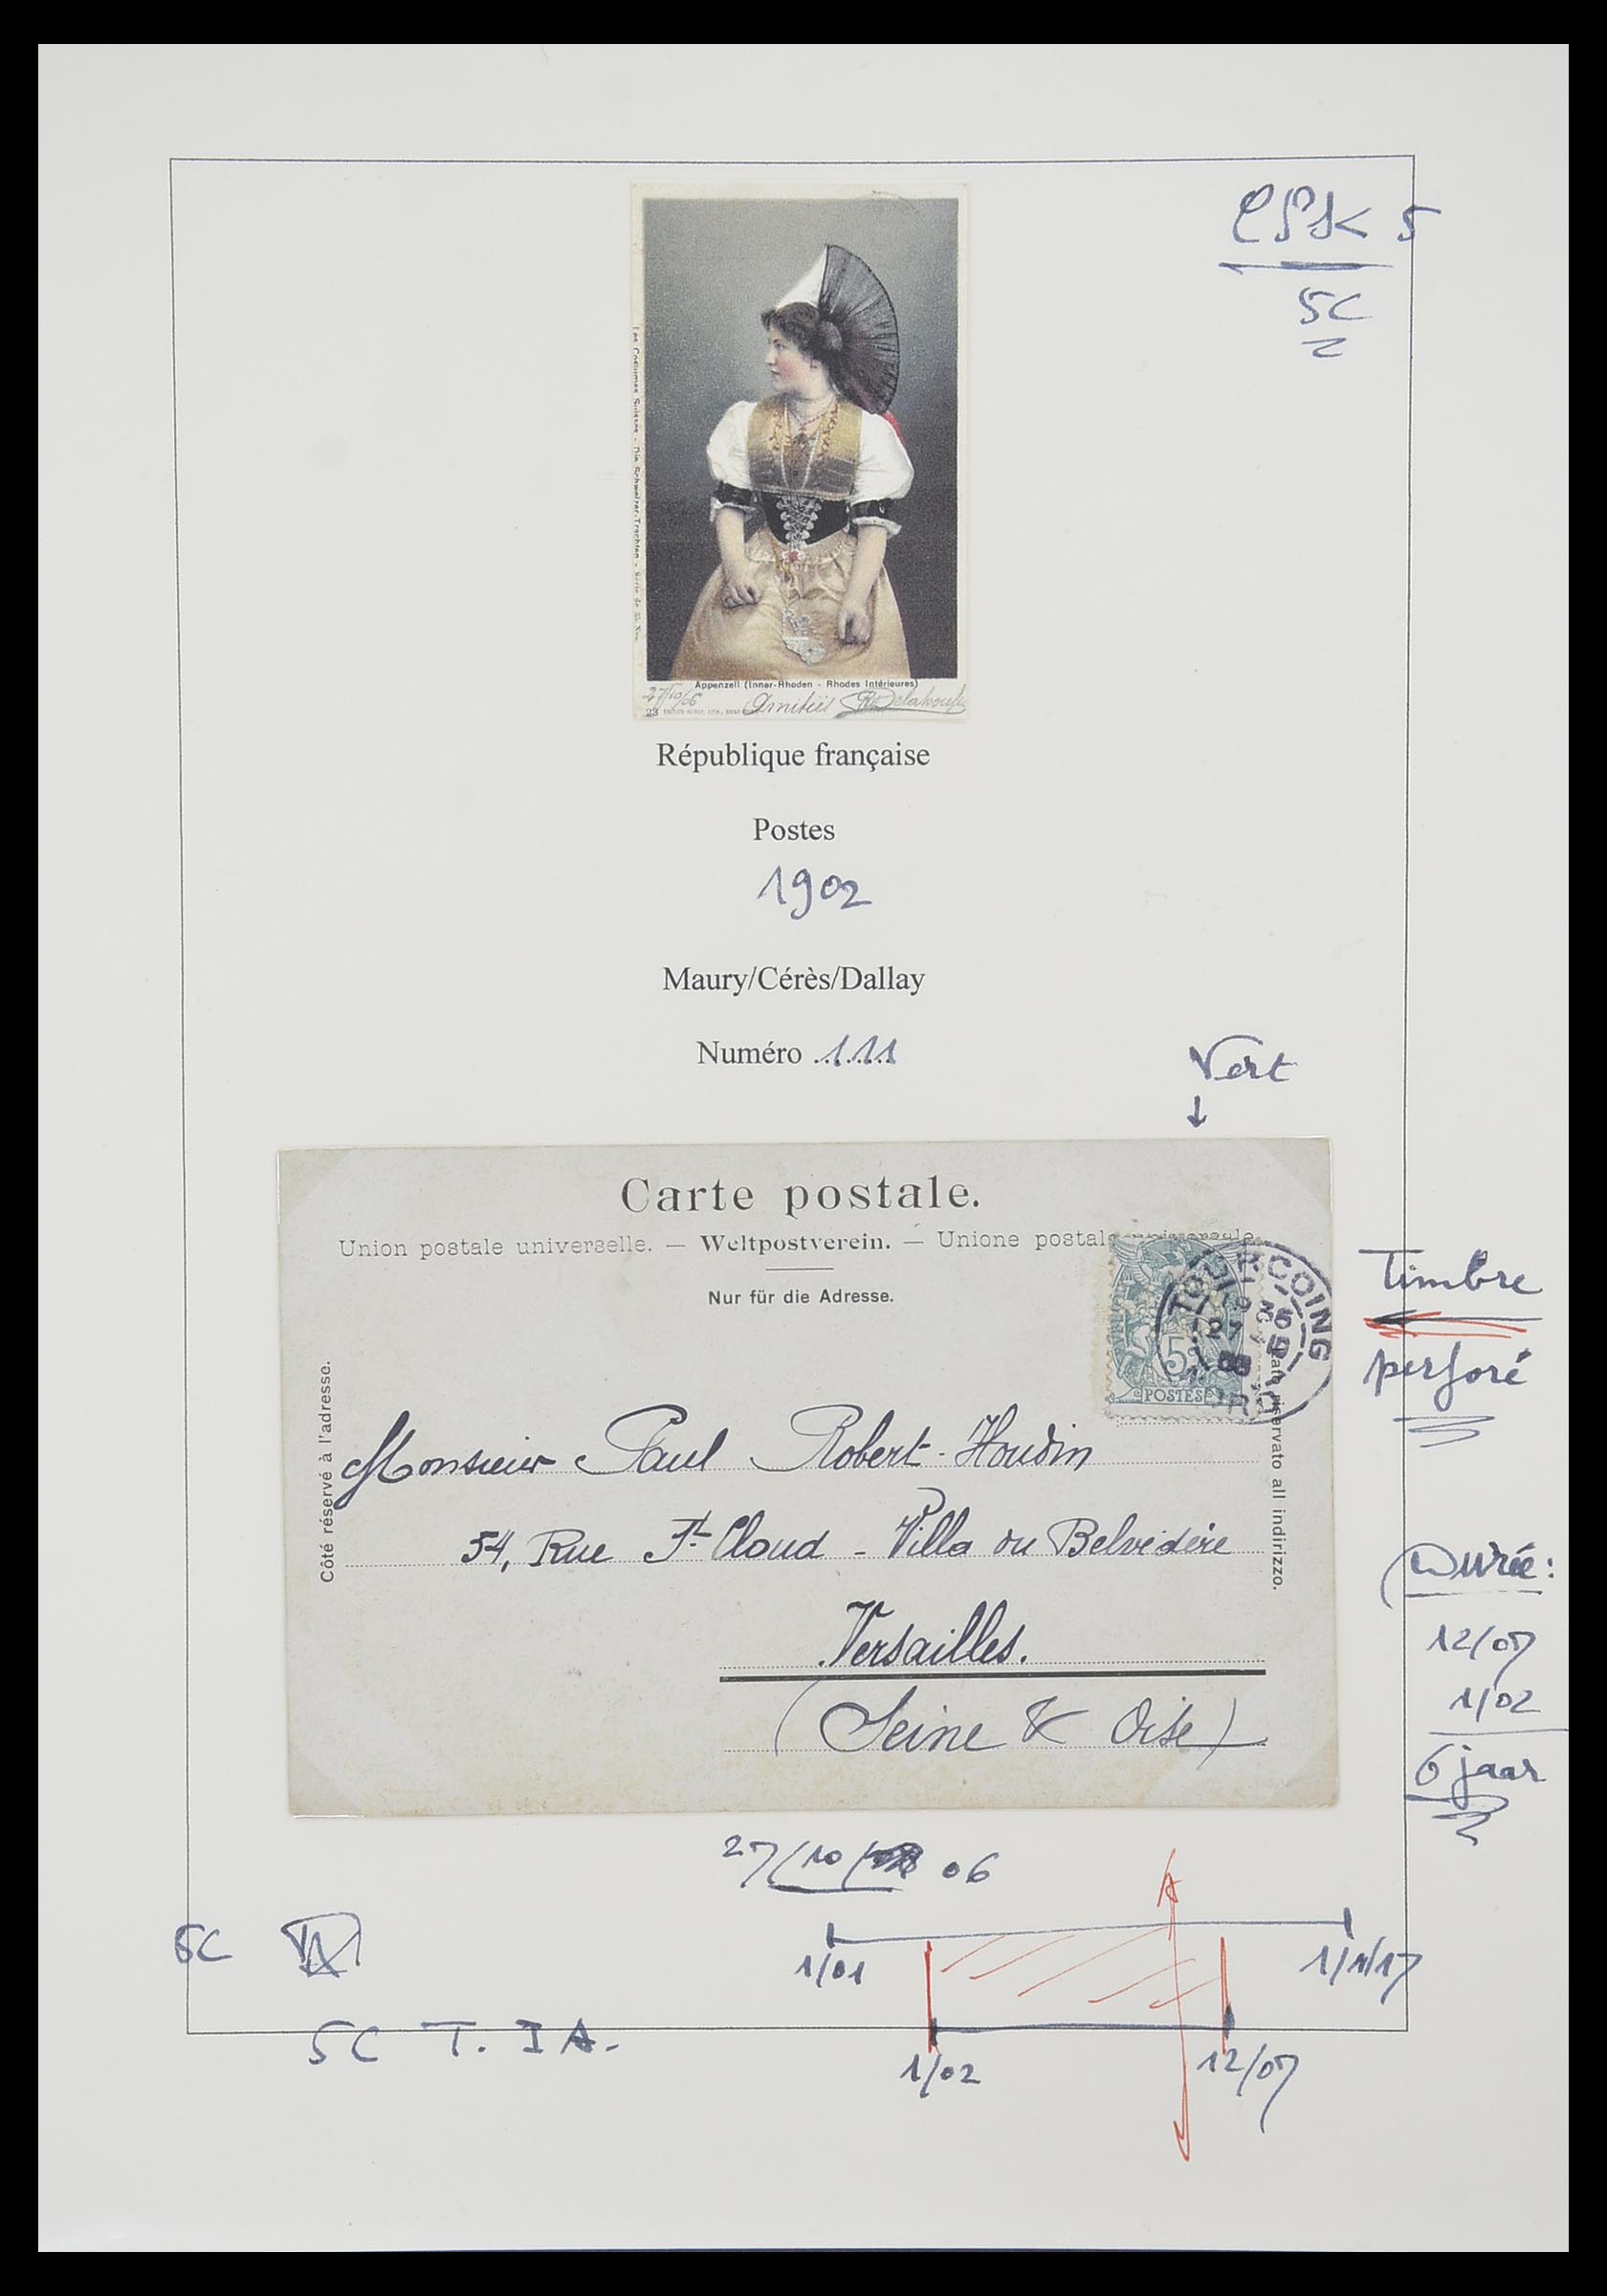 CPSK 5
5C
Les Costumes Suisses - Die Schweizer-Trachten - Série de 25 Nos
Appenzell (Inner-Rhoden - Rhodes Intérieures)
27/10/06 Amitiés
23
République française
Postes
1902
Maury/Cérès/Dallay
Numéro 111
Vert
Carte postale.
Union postale universelle. — Weltpostverein. — Unione postale universale.
Nur für die Adresse.
TOURCOING
NORD
5c
POSTES
Timbre
perforé
Côté réservé à l'adresse.
Lato riservato all indirizzo.
Monsieur Paul Robert-Houdin
54, Rue St Cloud - Villa du Belvédère
Versailles.
(Seine & Oise)
Durée:
12/07
1/02
6 jaar
27/10/ 06
5C
1/01
1/1/17
5C T. I A.
1/02
12/07